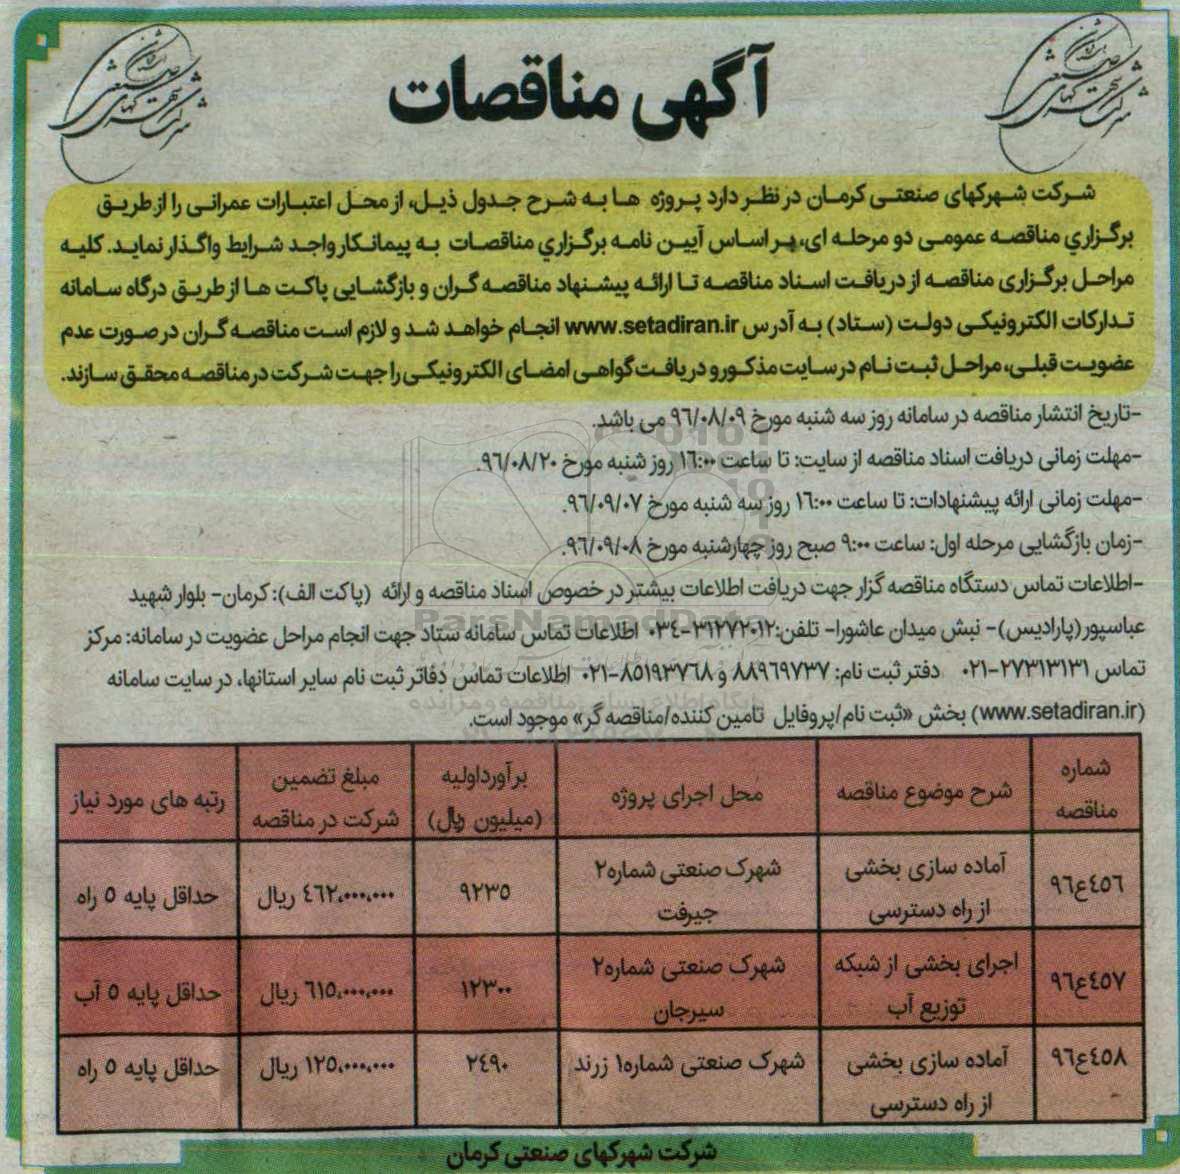 آگهی مناقصات
شرکت شهرکهای صنعتی کرمان در نظر دارد پروژه ها به شرح جدول ذیل، از محل اعتبارات عمرانی را از طریق
برگزاري مناقصه عمومی دو مرحله ای، بر اساس آیین نامه برگزاري مناقصات به پیمانکار واجد شرایط واگذار نماید. کلیه
مراحل برگزاری مناقصه از دریافت اسناد مناقصه تا ارائه پیشنهاد مناقصه گران و بازگشایی پاکت ها از طریق درگاه سامانه
تدارکات الکترونیکی دولت (ستاد) به آدرس www.setadiran.ir انجام خواهد شد و لازم است مناقصه گران در صورت عدم
عضویت قبلی، مراحل ثبت نام در سایت مذکور و دریافت گواهی امضای الکترونیکی را جهت شرکت در مناقصه محقق سازند.
-تاریخ انتشار مناقصه در سامانه روز سه شنبه مورخ ۹٦/۰۸/۰۹ می باشد.
-مهلت زمانی دریافت اسناد مناقصه از سایت: تا ساعت ۱٦:۰۰ روز شنبه مورخ ۹٦/۰۸/۲۰.
-مهلت زمانی ارائه پیشنهادات: تا ساعت ۱٦:۰۰ روز سه شنبه مورخ ۹٦/۰۹/۰۷.
-زمان بازگشایی مرحله اول: ساعت ۹:۰۰ صبح روز چهارشنبه مورخ ۹٦/۰۹/۰۸.
-اطلاعات تماس دستگاه مناقصه گزار جهت دریافت اطلاعات بیشتر در خصوص اسناد مناقصه و ارائه (پاکت الف): کرمان- بلوار شهید
عباسپور(پارادیس)- نبش میدان عاشورا- تلفن:۳۱۲۷۲۰۱۲-۰۳٤ اطلاعات تماس سامانه ستاد جهت انجام مراحل عضویت در سامانه: مرکز
تماس ۲۷۳۱۳۱۳۱-۰۲۱ دفتر ثبت نام: ۸۸۹٦۹۷۳۷ و ۸٥۱۹۳۷٦۸-۰۲۱ اطلاعات تماس دفاتر ثبت نام سایر استانها، در سایت سامانه
(www.setadiran.ir) بخش «ثبت نام/پروفایل تامین کننده/مناقصه گر» موجود است.
شماره مناقصه | شرح موضوع مناقصه | محل اجرای پروژه | برآورد اولیه (میلیون ریال) | مبلغ تضمین شرکت در مناقصه | رتبه های مورد نیاز
٤٥٦ع۹٦ | آماده سازی بخشی از راه دسترسی | شهرک صنعتی شماره۲ جیرفت | ۹۲۳٥ | ٤٦۲,۰۰۰,۰۰۰ ریال | حداقل پایه ٥ راه
٤٥۷ع۹٦ | اجرای بخشی از شبکه توزیع آب | شهرک صنعتی شماره۲ سیرجان | ۱۲۳۰۰ | ٦۱٥,۰۰۰,۰۰۰ ریال | حداقل پایه ٥ آب
٤٥۸ع۹٦ | آماده سازی بخشی از راه دسترسی | شهرک صنعتی شماره۱ زرند | ۲٤۹۰ | ۱۲٥,۰۰۰,۰۰۰ ریال | حداقل پایه ٥ راه
شرکت شهرکهای صنعتی کرمان